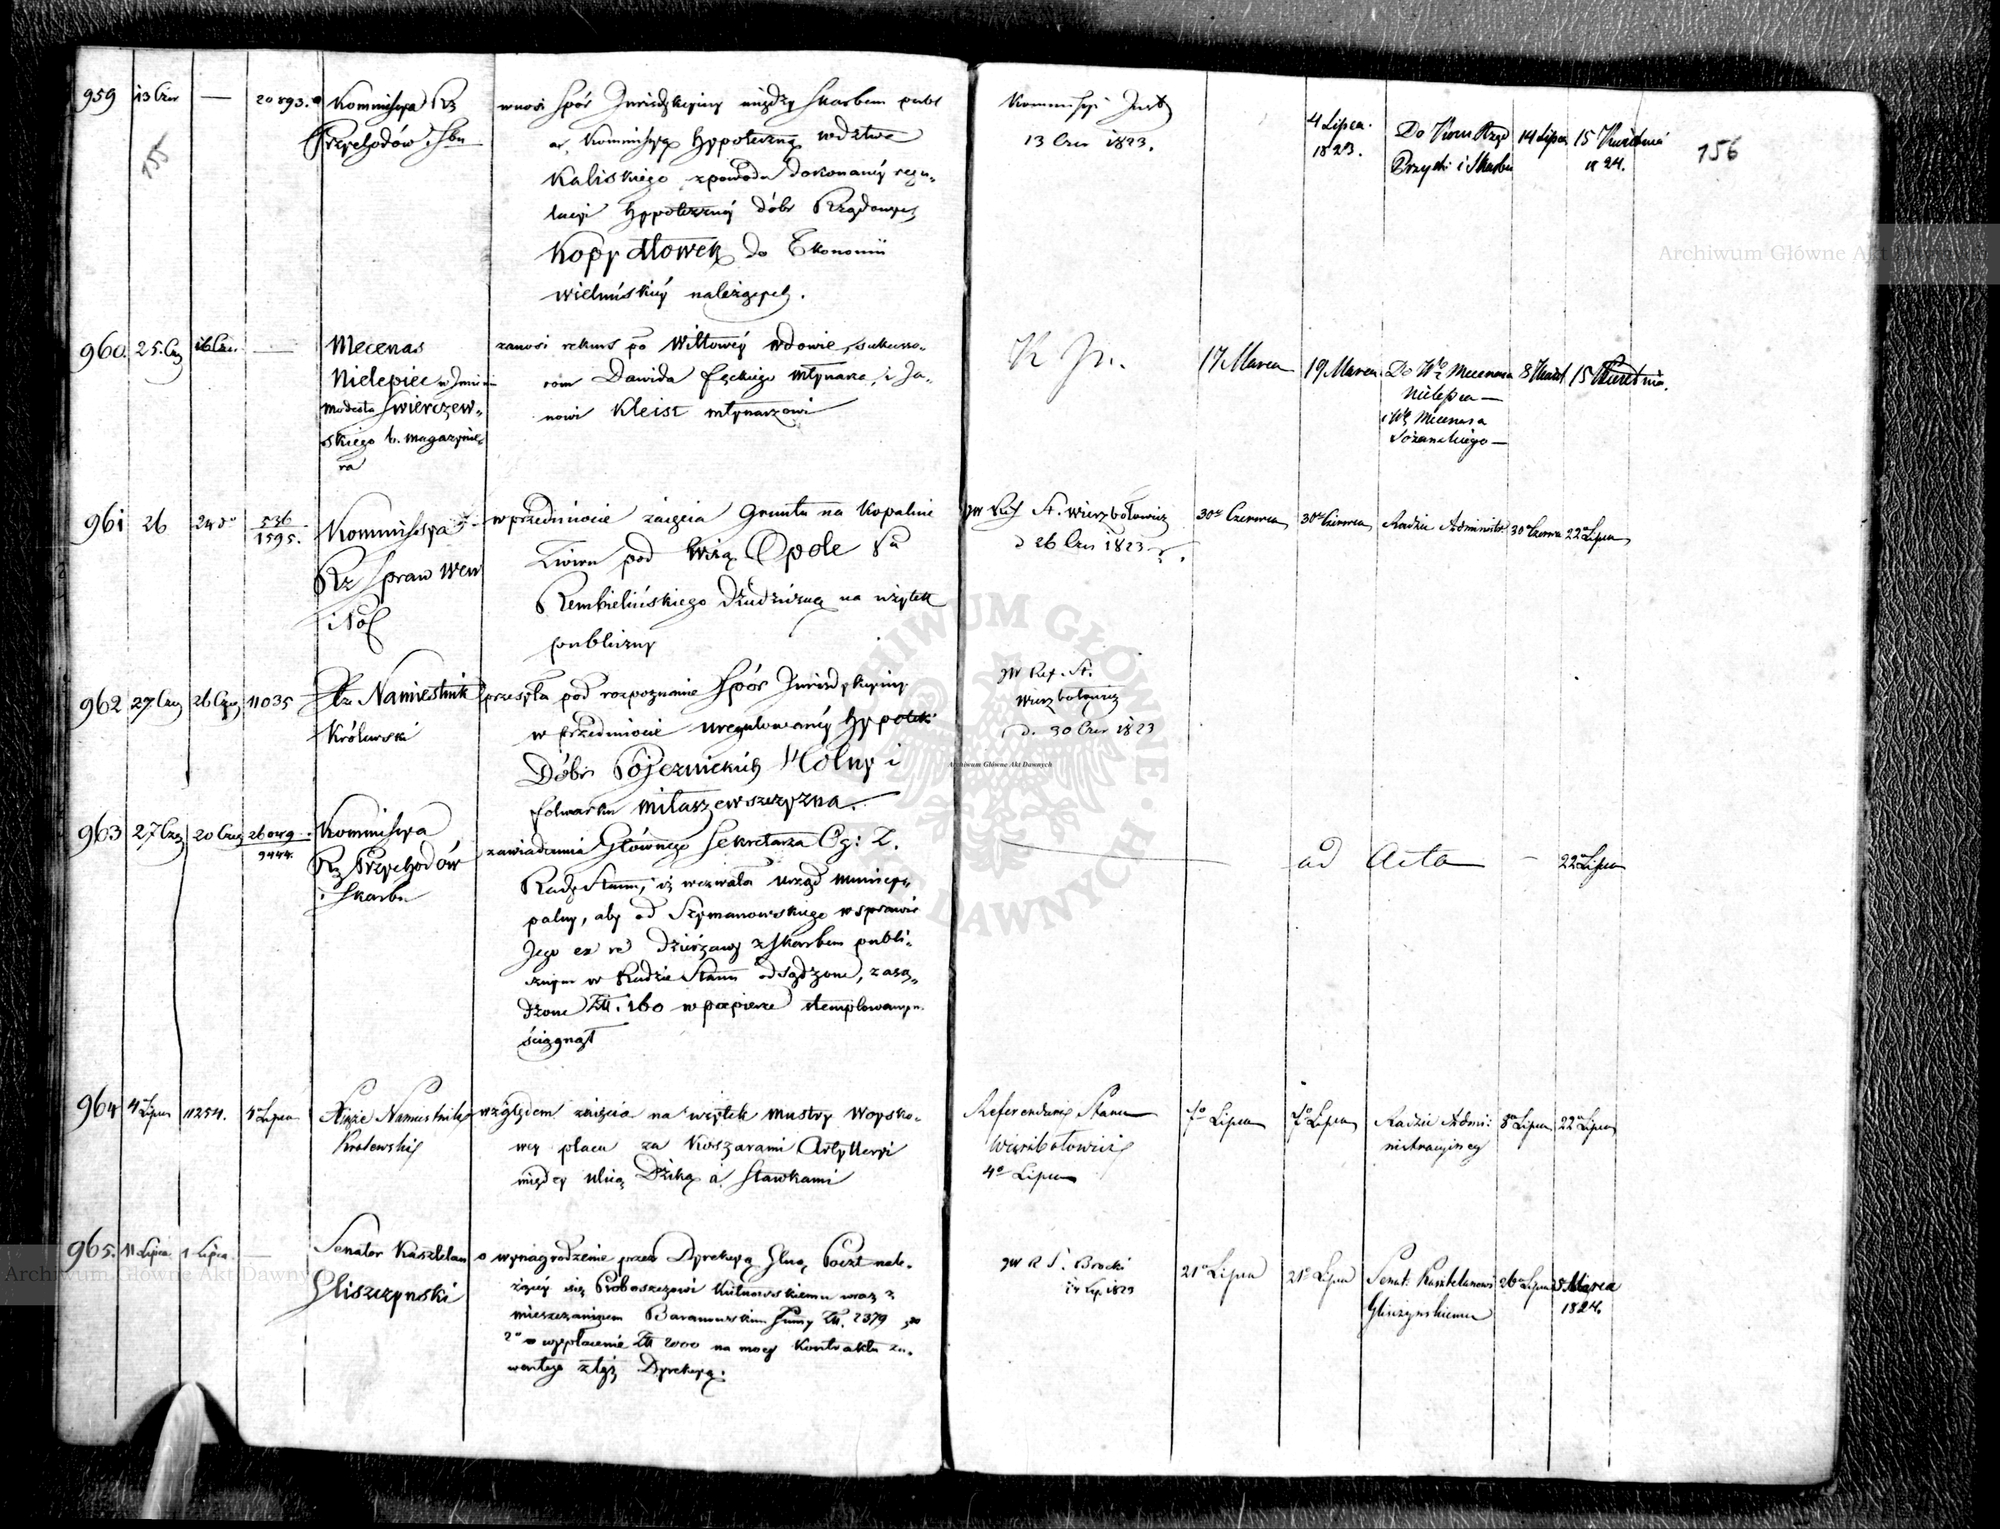 155
959 13 Czer — 20893. Kommissya Rz
Przychodów i Skbu
wnosi Spór Jurisdykcyiny między Skarbem publ
a Kommissyą Hypoteczną wdztwa
Kaliskiego z powodu dokonanéy regu-
lacyi Hyppoteczney dóbr Rządowych
Kopydłowek do Ekonomii
wieluńskiéy należących.
13 Czer 1823.
4 Lipca
1823.
Do Kom Rząd
Przych i Skarbu
14 Lipca 15 Kwietnia
1824.
156
960 25. Cz 16 Cze. — Mecenas
Nielepiec w Imieniu
Modesta Swierczew-
skiego b. magazynie-
ra
zanosi rekurs po Wittowéy wdowie, sukcesso-
rom Dawida Łęckiego młynarza, i Ja-
nowi Kleist młynarzowi
17 Marca 19 Marca Do Wo Mecenasa
Nielepca —
i Wo Mecenasa
8 Kwiet 15 Kwietnia.
961 26 24 do 536
1595.
Kommissya
Rz Spraw Wew
i Pol
w przedmiocie zaięcia Gruntu na Kopalnie
Żwiru pod wsią Opole Pa
Rembielińskiego Dziedziczną na użytek
publiczny
JW Ref St. Wierzbołowicz
d 26 Czer 1823 r.
30 Czerwca 30 Czerwca Radzie Administr. 30 Czerwca 22 Lipca
962 27 Cz 26 Cz 11035 Xże Namiestnik
Królewski
przesyła pod rozpoznanie Spór Jurisdykcyiny
w przedmiocie uregulowanéy Hypotek
Dóbr Pojeznickich Wolny i
folwarku Miłaszewszczyzna.
JW Ref. St.
Wierzbołowicz
d. 30 Czer 1823
963 27 Cz 20 Czer
9444.
Kommissya
Rz Przychodów
i Skarbu
zawiadamia Głównego Sekretarza Og: Z.
Rady Stanu, iż wezwała Urząd Municy-
palny, aby od Szymanowskiego w sprawie
Jego ex re dzierżawy z Skarbem publi-
cznym w Radzie Stanu odsądzone, zasą-
dzone Złł. 160 w papierze stemplowanym
ściągnął
ad Acta — 22 Lipca
964 4 Lipca 11254. 4 Lipca Xiąże Namiestnik
Krolewski
względem zaięcia na użytek mustry woysko-
wey placu za Koszarami Artylleryi
między ulicą Dziką a Stawkami
Referendarz Stanu
Wierzbołowicz
4o Lipca
7o Lipca 7o Lipca Radzie Admi:
nistracyjney
8 Lipca 22 Lipca
965. 11 Lipca 1 Lipca — Senator Kasztelan
Gliszczynski
o wynagrodzenie przez Dyrekcyą Główną Poczt nale-
żącey się Proboszczowi Kutnowskiemu wraz z
mieszczaninem Baranowskim Summy Złł. 2379
2o o wypłacenie Złł 2000 na mocy Kontraktu za-
wartego z tąż Dyrekcyą.
JW R S. Brocki
21o Lipca 21o Lipca Senat. Kasztelanowi
Gliszczynskiemu
26 Lipca 8 Marca
1824.
Archiwum Główne Akt Dawnych